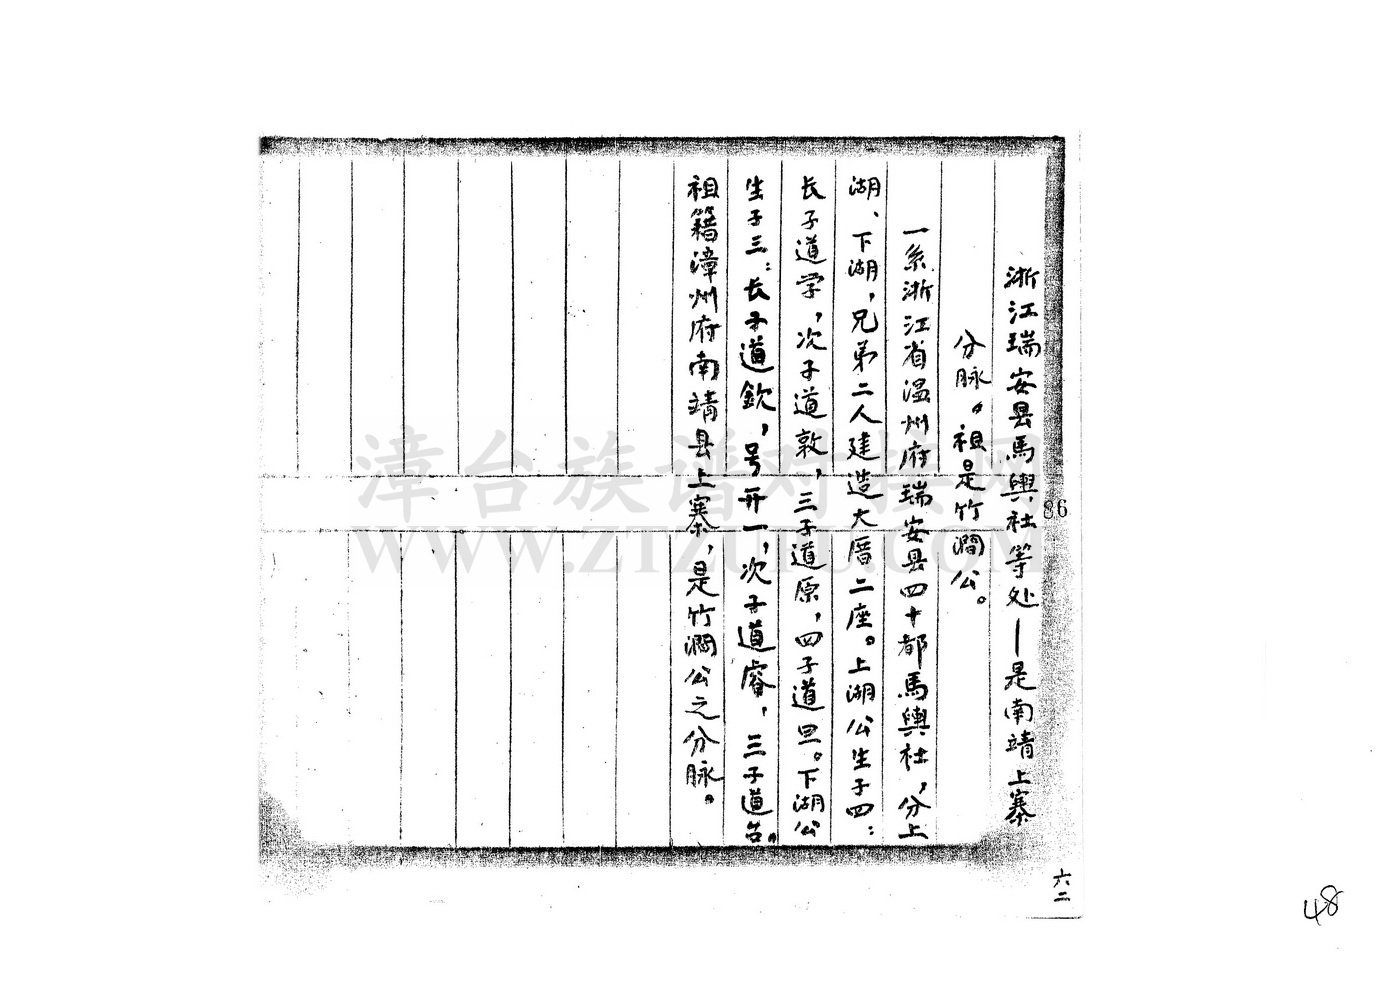 浙江瑞安县馬輿社等处—是南靖上寨
分脉。祖是竹澗公。
一系浙江省温州府瑞安县四十都馬輿社，分上
湖、下湖，兄弟二人建造大厝二座。上湖公生子四：
长子道学，次子道敦，三子道原，四子道思。下湖公
生子三：长子道欽，号开一，次子道睿，三子道岩。
祖籍漳州府南靖县上寨，是竹澗公之分脉。
86
六二
48
漳台族谱对接网
WWW.ZTZUPU.COM